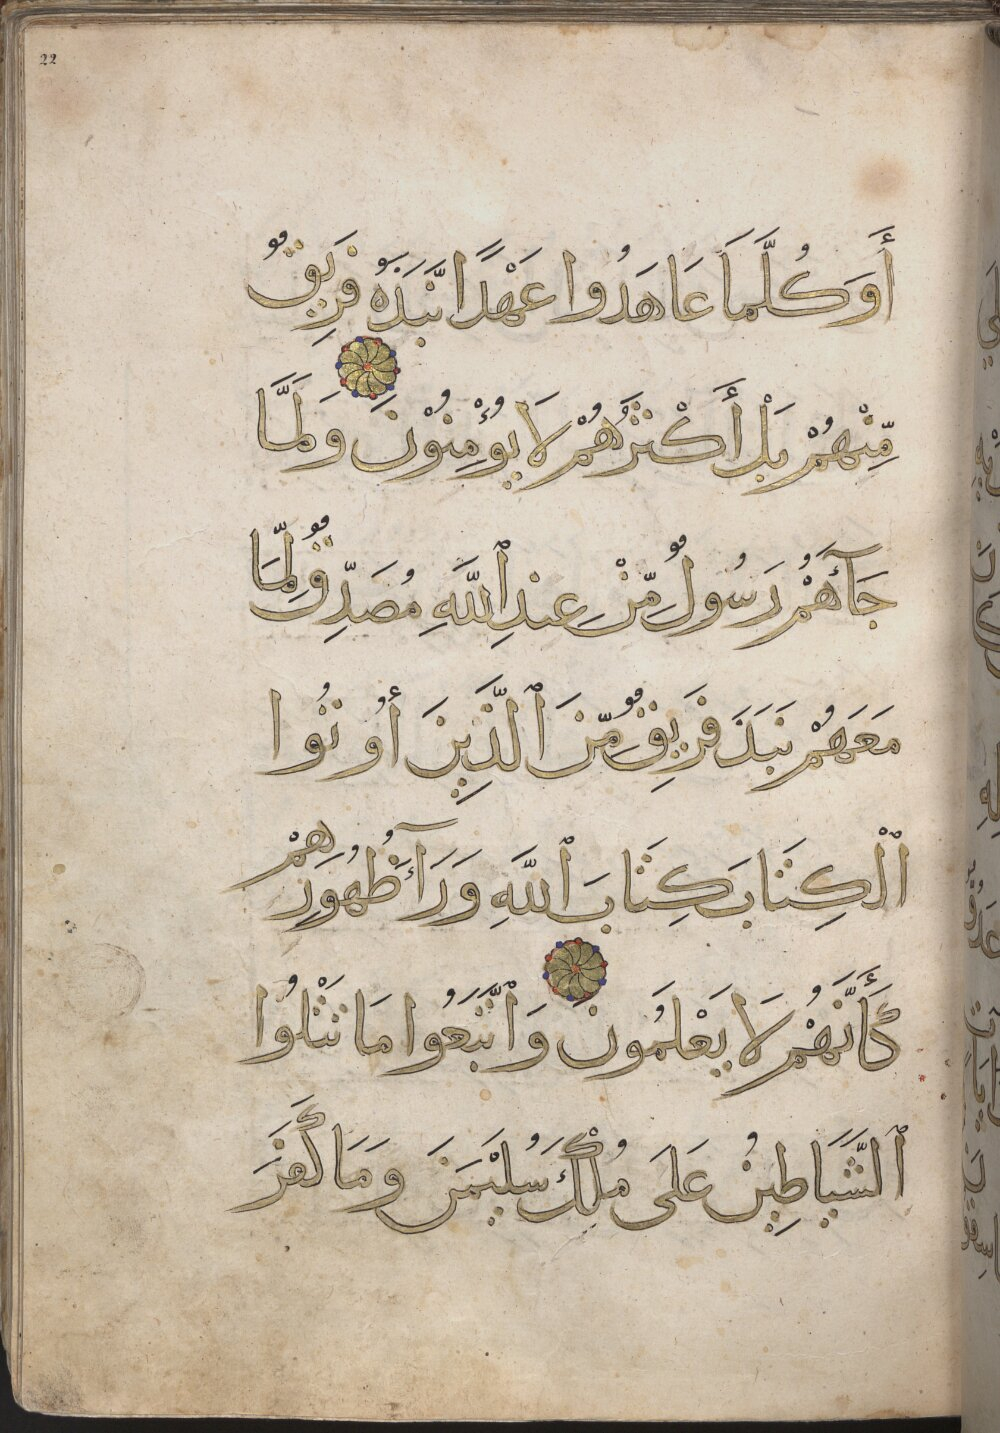 22
أَوَكُلَّمَا عَاهَدُوا عَهْدًا نَّبَذَهُ فَرِيقٌ
مِّنْهُمْ بَلْ أَكْثَرُهُمْ لَا يُؤْمِنُونَ وَلَمَّا
جَآءَهُمْ رَسُولٌ مِّنْ عِندِ ٱللَّهِ مُصَدِّقٌ لِّمَا
مَعَهُمْ نَبَذَ فَرِيقٌ مِّنَ ٱلَّذِينَ أُوتُوا
ٱلْكِتَابَ كِتَابَ ٱللَّهِ وَرَآءَ ظُهُورِهِمْ
كَأَنَّهُمْ لَا يَعْلَمُونَ وَٱتَّبَعُوا مَا تَتْلُوا
ٱلشَّيَاطِينُ عَلَى مُلْكِ سُلَيْمَنَ وَمَا كَفَرَ